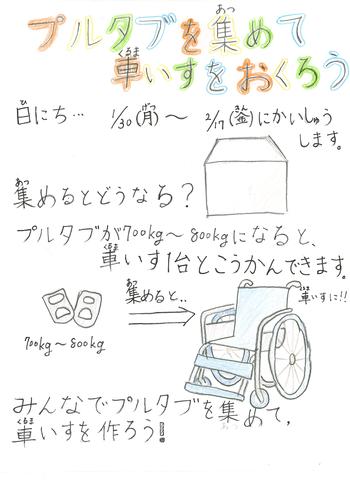 プルタブを集めて
車いすをおくろう
日にち… 1/30(月)～ 2/17(金)にかいしゅう
します。
集めるとどうなる?
プルタブが700kg～800kgになると、
車いす1台とこうかんできます。
集めると… 車いすに!!
700kg～800kg
みんなでプルタブを集めて、
車いすを作ろう!